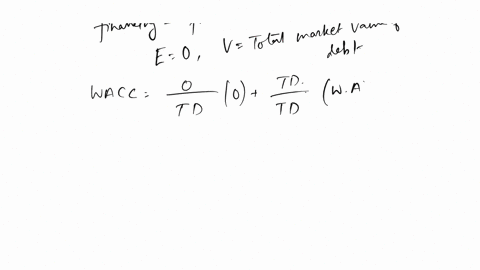 financing
E=0, V= Total market value of debt
WACC = 0/TD (0) + TD/TD (W.A